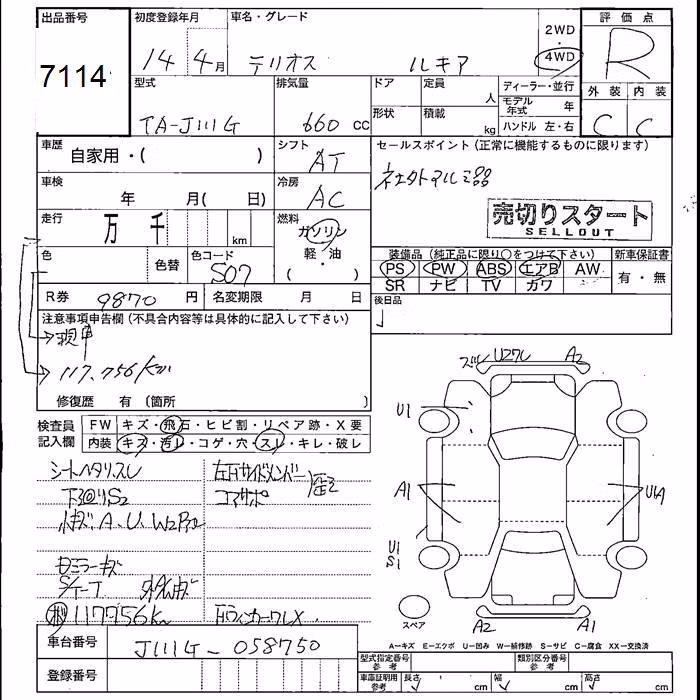 出品番号 初度登録年月 車名・グレード 評価点
7114 14年 4月 テリオス ルキア 2WD・4WD R
型式 排気量 ドア 定員 人 ディーラー・並行 外装 内装
TA-J111G 660 cc 形状 積載 kg モデル年式 年 C C
ハンドル 左・右
車歴 自家用・( ) シフト AT セールスポイント(正常に機能するものに限ります)
車検 年 月( 日) 冷房 AC
売切りスタート
SELLOUT
走行 万 千 km 燃料 ガソリン
軽・油
( )
色 色替 色コード S07
装備品(純正品に限り○をつけて下さい) 新車保証書
PS PW ABS エアB AW 有・無
SR ナビ TV カワ
R券 9870 円 名変期限 月 日 後日品
注意事項申告欄(不具合内容等は具体的に記入して下さい)
現車
117,756km
修復歴 有 (箇所 )
検査員記入欄 FW キズ・飛石・ヒビ割・リペア跡・X要
内装 キズ・汚レ・コゲ・穴・スレ・キレ・破レ
シートヘタリスレ 左右サイドメンバー
下回りS2 コアサポ
小キズA.U.W2
ミラーキズ
117756km
ズレ U2ワレ A2
U1
A1 U1A
U1
S1
スペア A2 A1
A=キズ E=エクボ U=凹み W=補修跡 S=サビ C=腐食 XX=交換済
車台番号 J111G-058750
登録番号
型式指定番号 参考 類別区分番号 参考
車庫証明用 参考 長さ cm 幅 cm 高さ cm